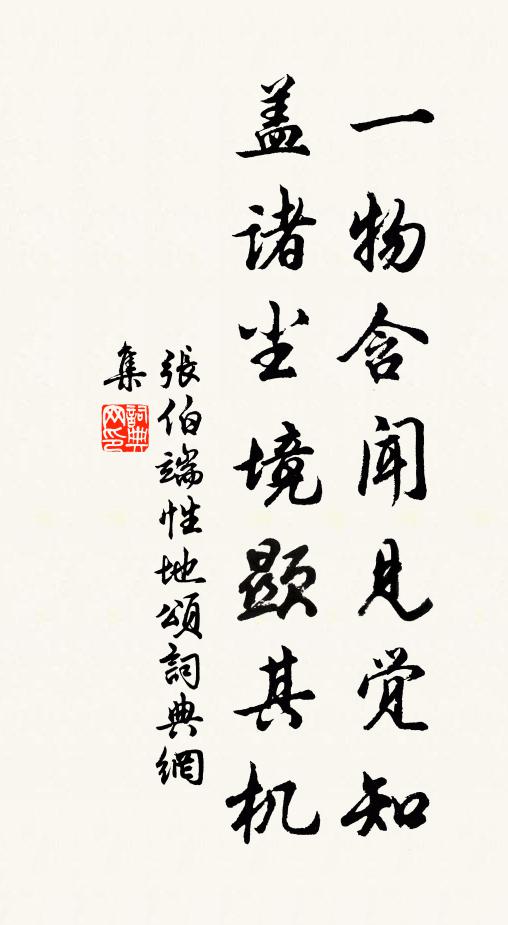 一物含闻见觉知
盖诸尘境显其机
張伯端性地頌詞典網
集
詞典
网印